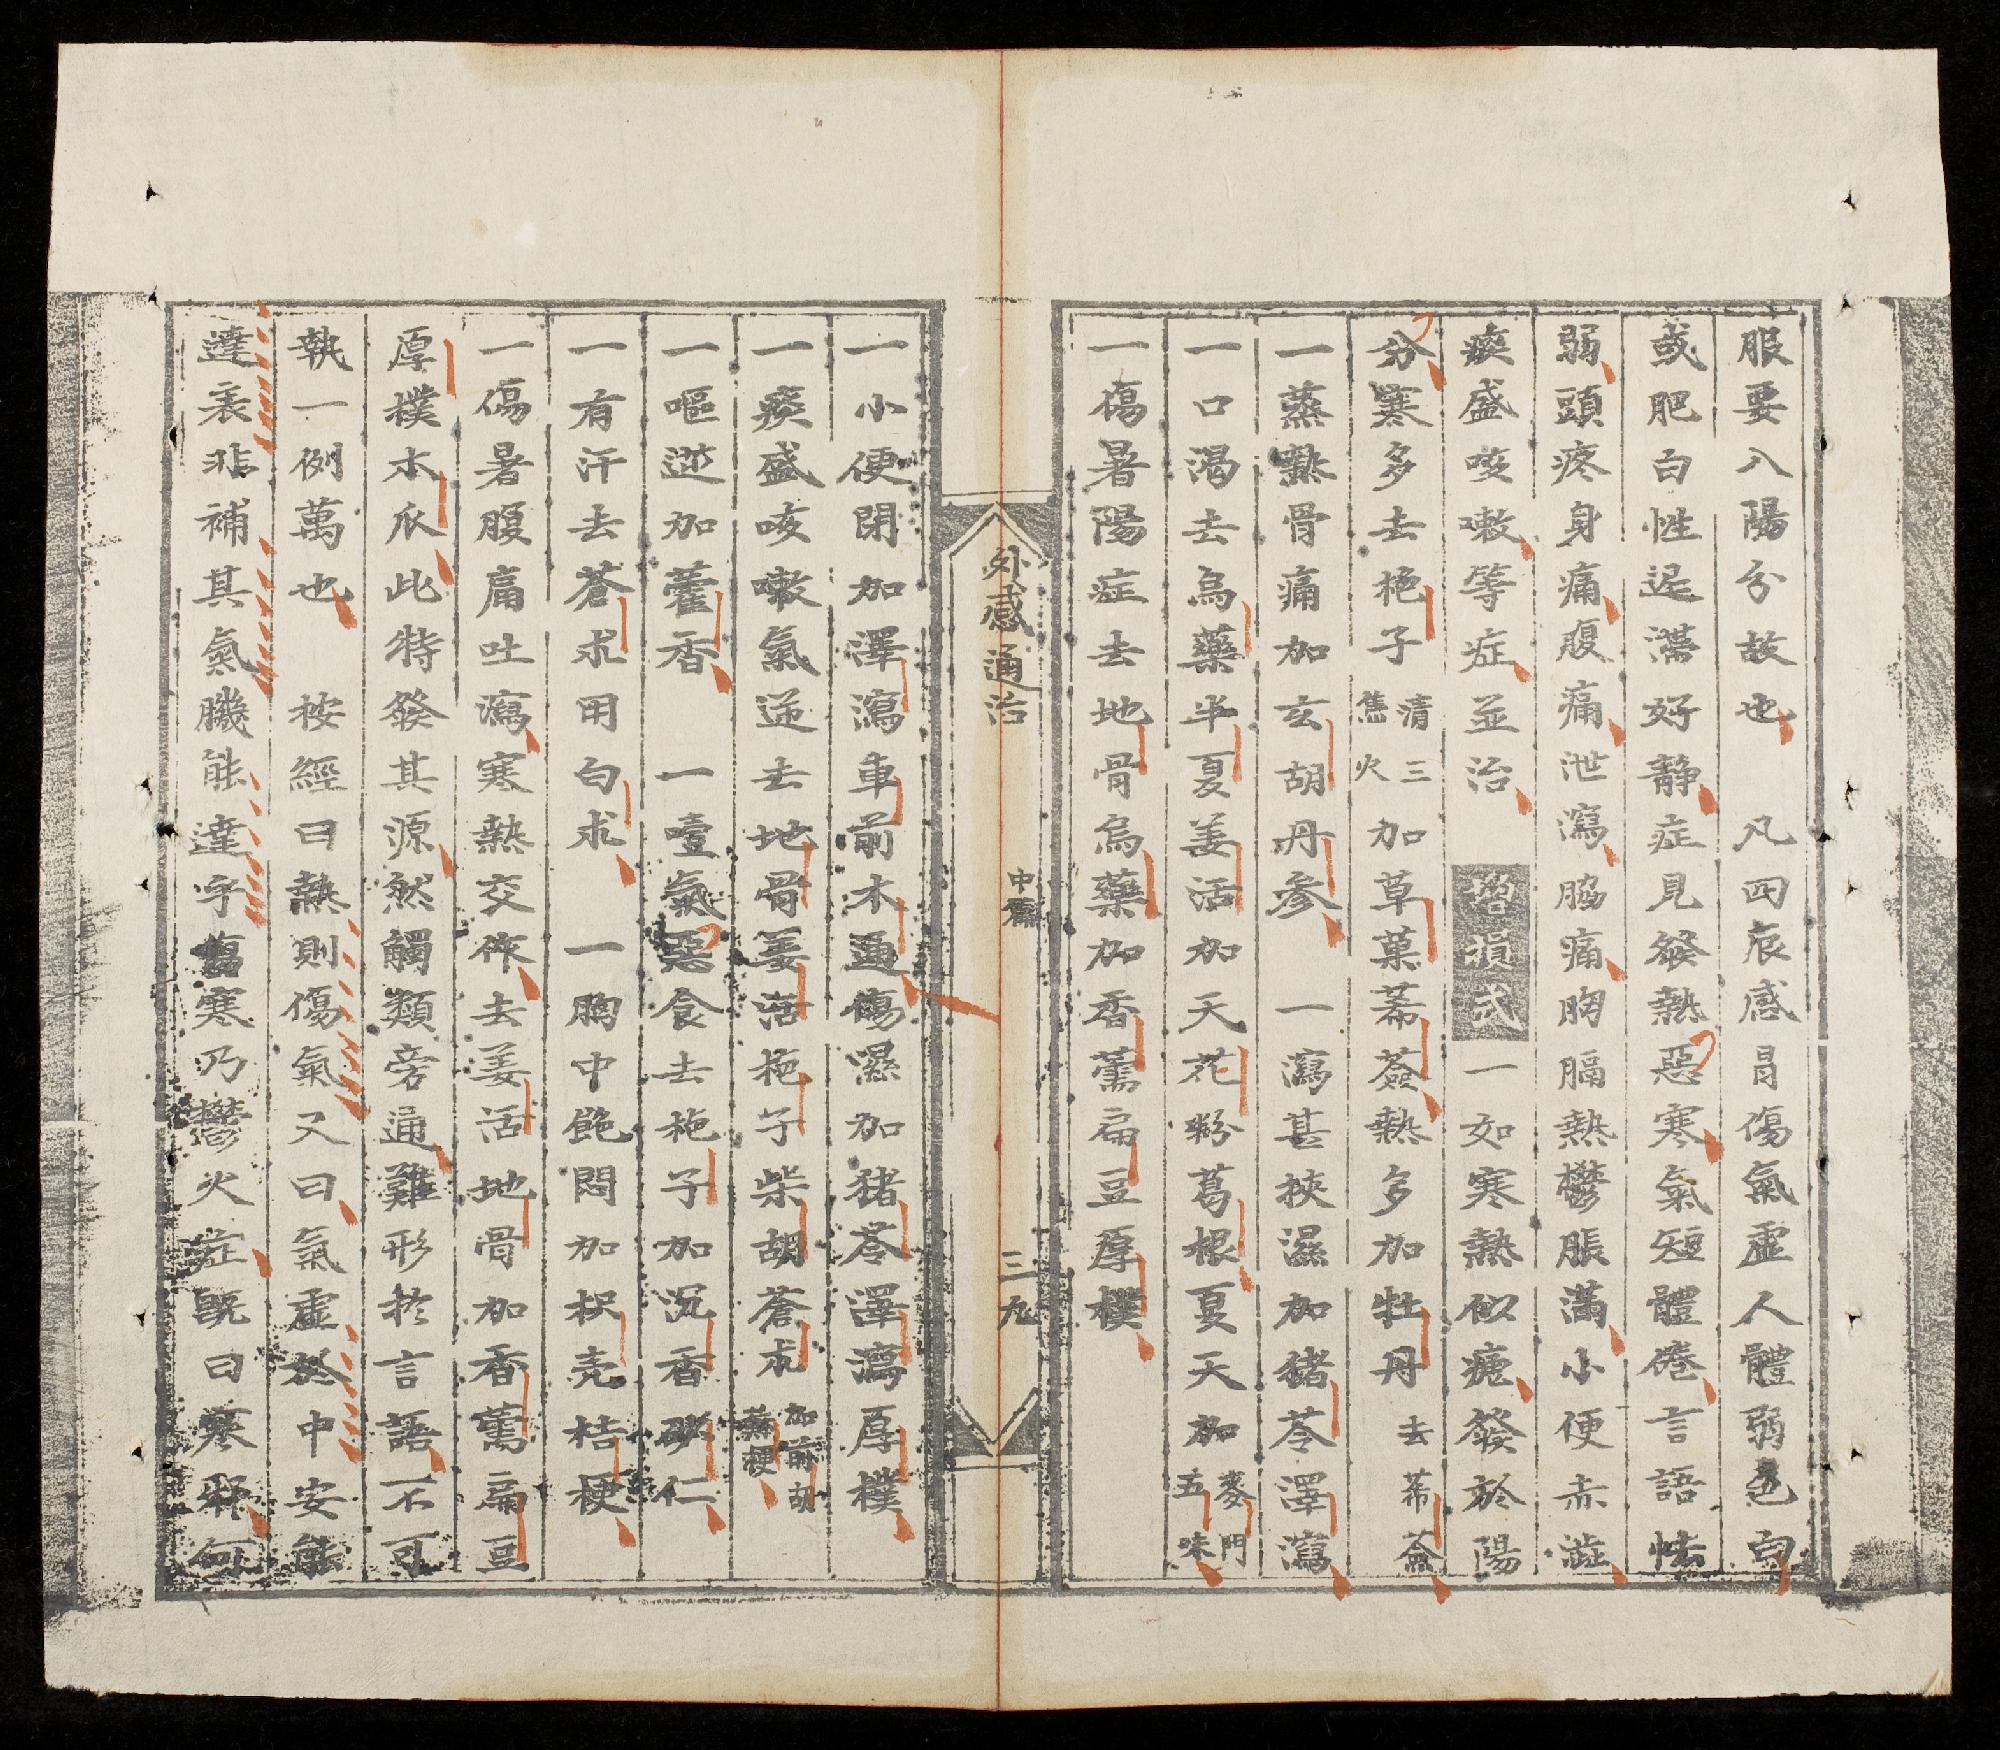 服要入陽分故也 凡四辰感冒傷氣虛人體弱色白
或肥白性遲滯好靜症見發熱惡寒氣短體倦言語怯
弱頭疼身痛腹痛泄瀉脇痛胸膈熱鬱脹滿小便赤澁
痰盛咳嗽等症並治 一如寒熱似瘧發於陽
分寒多去梔子清三焦火加草菓蒂薟熱多加牡丹去蒂薟
一蒸熱骨痛加玄胡丹參 一瀉甚挾濕加猪苓澤瀉
一口渴去烏藥半夏姜活加天花粉葛根夏天加麥門五味
一傷暑陽症去地骨烏藥加香薷扁豆厚樸
外感通治 中篇 三九
一小便閉加澤瀉車前木通傷濕加猪苓澤瀉厚樸
一痰盛咳嗽氣逆去地骨姜活梔子柴胡蒼朮加前胡蘇梗
一嘔逆加藿香 一噎氣惡食去梔子加沉香砂仁
一有汗去蒼朮用白朮 一胸中飽悶加枳壳桔梗
一傷暑腹痛吐瀉寒熱交作去姜活地骨加香薷扁豆
厚樸木瓜此特發其源然觸類旁通難形於言語不可
執一例萬也 按經曰熱則傷氣又曰氣虛於中安能
達表非補其氣機能達乎傷寒乃鬱火症既曰寒邪何